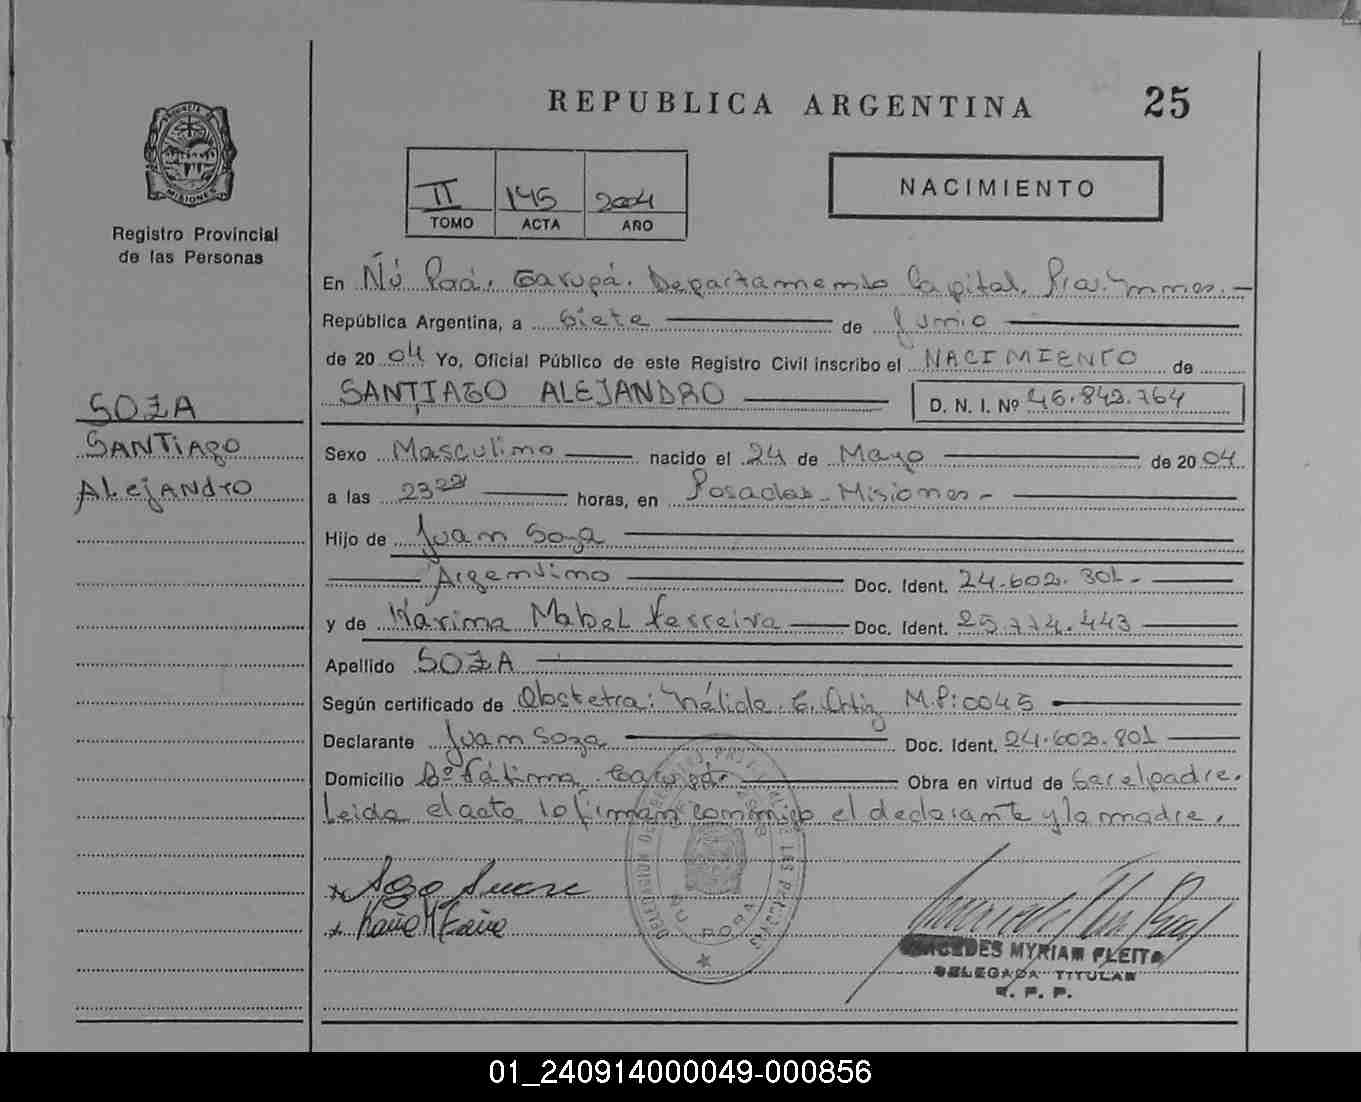 REPUBLICA ARGENTINA
25
MISIONES
Registro Provincial
de las Personas
II 145 2004
TOMO ACTA AÑO
NACIMIENTO
En Ñú Porá. Garupá. Departamento Capital. Misiones.-
República Argentina, a Siete de Junio
de 2004 Yo, Oficial Público de este Registro Civil inscribo el NACIMIENTO de
SANTIAGO ALEJANDRO D. N. I. Nº 45.842.764
SOZA
SANTIAGO
ALEJANDRO
Sexo Masculino nacido el 24 de Mayo de 2004
a las 23 22 horas, en Posadas - Misiones -
Hijo de Juan Soza
Argentino Doc. Ident. 24.602.801-
y de Karina Mabel Ferreira Doc. Ident. 25.774.443
Apellido SOZA
Según certificado de Obstetra: Nélida E. Ortiz M.P:0045
Declarante Juan Soza Doc. Ident. 24.602.801
Domicilio Bº Fátima. Garupá. Obra en virtud de Ser el padre.
Leida el acta lo firman conmigo el declarante y la madre.
ÑU PORA
MERCEDES MYRIAM FLEITA
DELEGADA TITULAR
R. P. P.
01_240914000049-000856